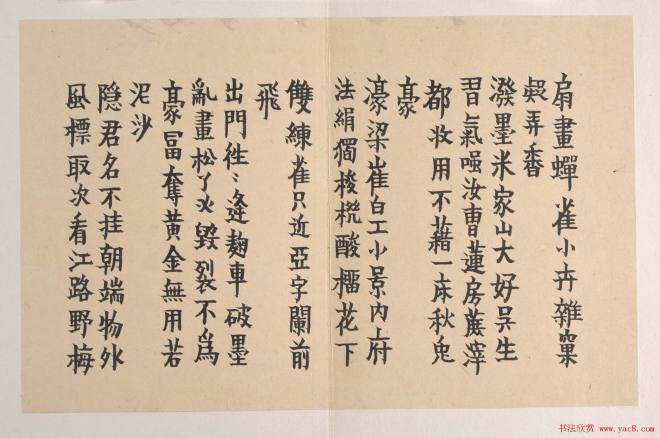 扇畫蟬雀小卉雜窠
弄
潑墨米家山大好吳生
習氣嗤汝曹蓮房蔗滓
都妆用不藉一床秋兔
豪
濠梁崔白工小景内府
法絹獨梭酸榴花下
雙練雀只近亞字闌前
飛
出門徃〻逢麹車破墨
亂畫松丫火毀裂不爲
豪冨奪黃金無用若
泥沙
隐君名不挂朝端物外
風標取次看江路野梅
书法欣赏 www.yac8.com